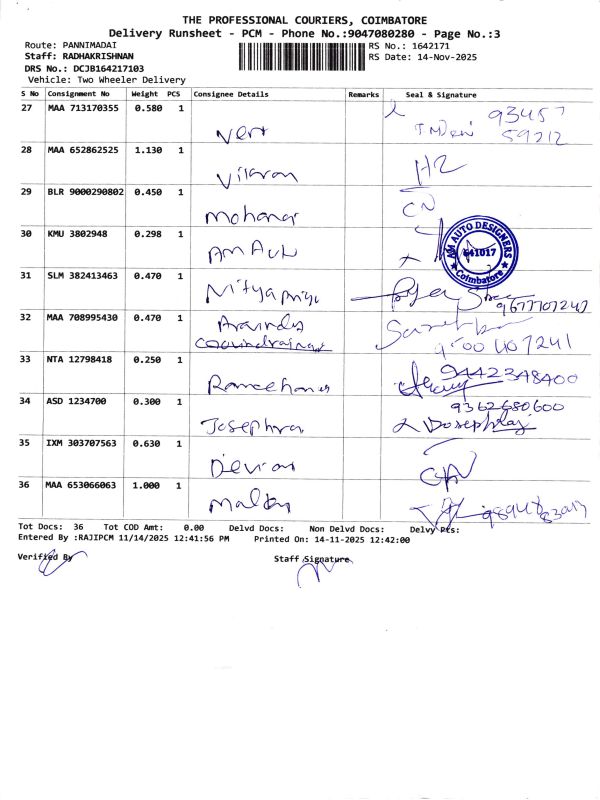 THE PROFESSIONAL COURIERS, COIMBATORE
Delivery Runsheet - PCM - Phone No.:9047080280 - Page No.:3
Route: PANNIMADAI
RS No.: 1642171
Staff: RADHAKRISHNAN
RS Date: 14-Nov-2025
DRS No.: DCJB164217103
Vehicle: Two Wheeler Delivery
S No Consignment No Weight PCS Consignee Details Remarks Seal & Signature
27 MAA 713170355 0.580 1
28 MAA 652862525 1.130 1
H2
29 BLR 9000290802 0.450 1
Mohana
CN
30 KMU 3802948 0.298 1
AM Auto
AM AUTO DESIGNERS
641017
Coimbatore
31 SLM 382413463 0.470 1
Nityapriya
9677707247
32 MAA 708995430 0.470 1
Aravindy
9500407241
33 NTA 12798418 0.250 1
9442348400
34 ASD 1234700 0.300 1
9362680600
Josephraj
Josephraj
35 IXM 303707563 0.630 1
36 MAA 653066063 1.000 1
Tot Docs: 36 Tot COD Amt: 0.00 Delvd Docs: Non Delvd Docs: Delvy Pts:
Entered By :RAJIPCM 11/14/2025 12:41:56 PM Printed On: 14-11-2025 12:42:00
Verified By
Staff Signature